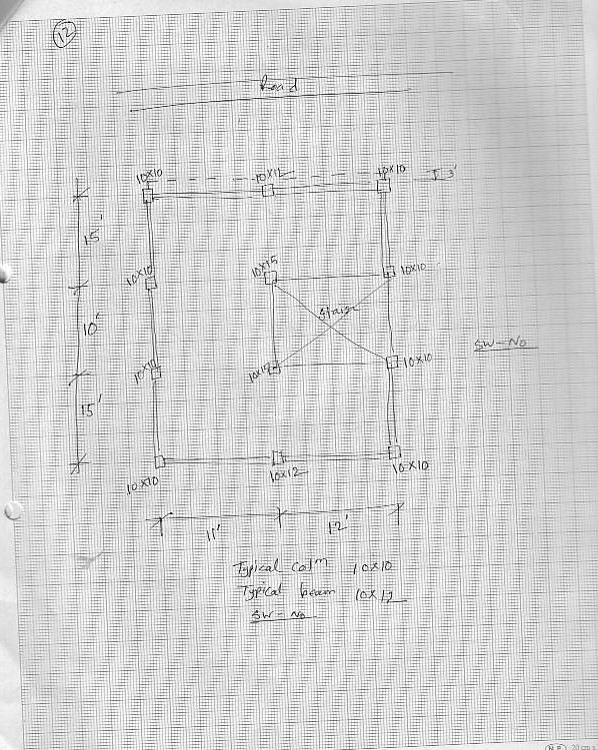 12
Road
10x10 10x12 10x10 3'
15'
10x10 10x15 10x10
10' Stair
SW-No
10x10 10x12 10x10
15'
10x10 10x12 10x10
11' 12'
Typical colm 10x10
Typical beam 10x12
SW-No
N.P. 20